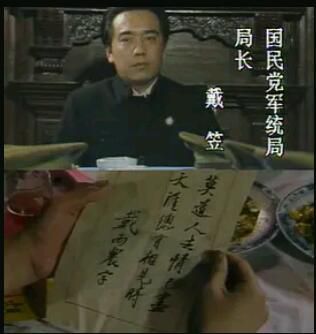 国民党军统局
局长
戴笠
莫道人去情已尽
天涯總有相見時
戴雨農字